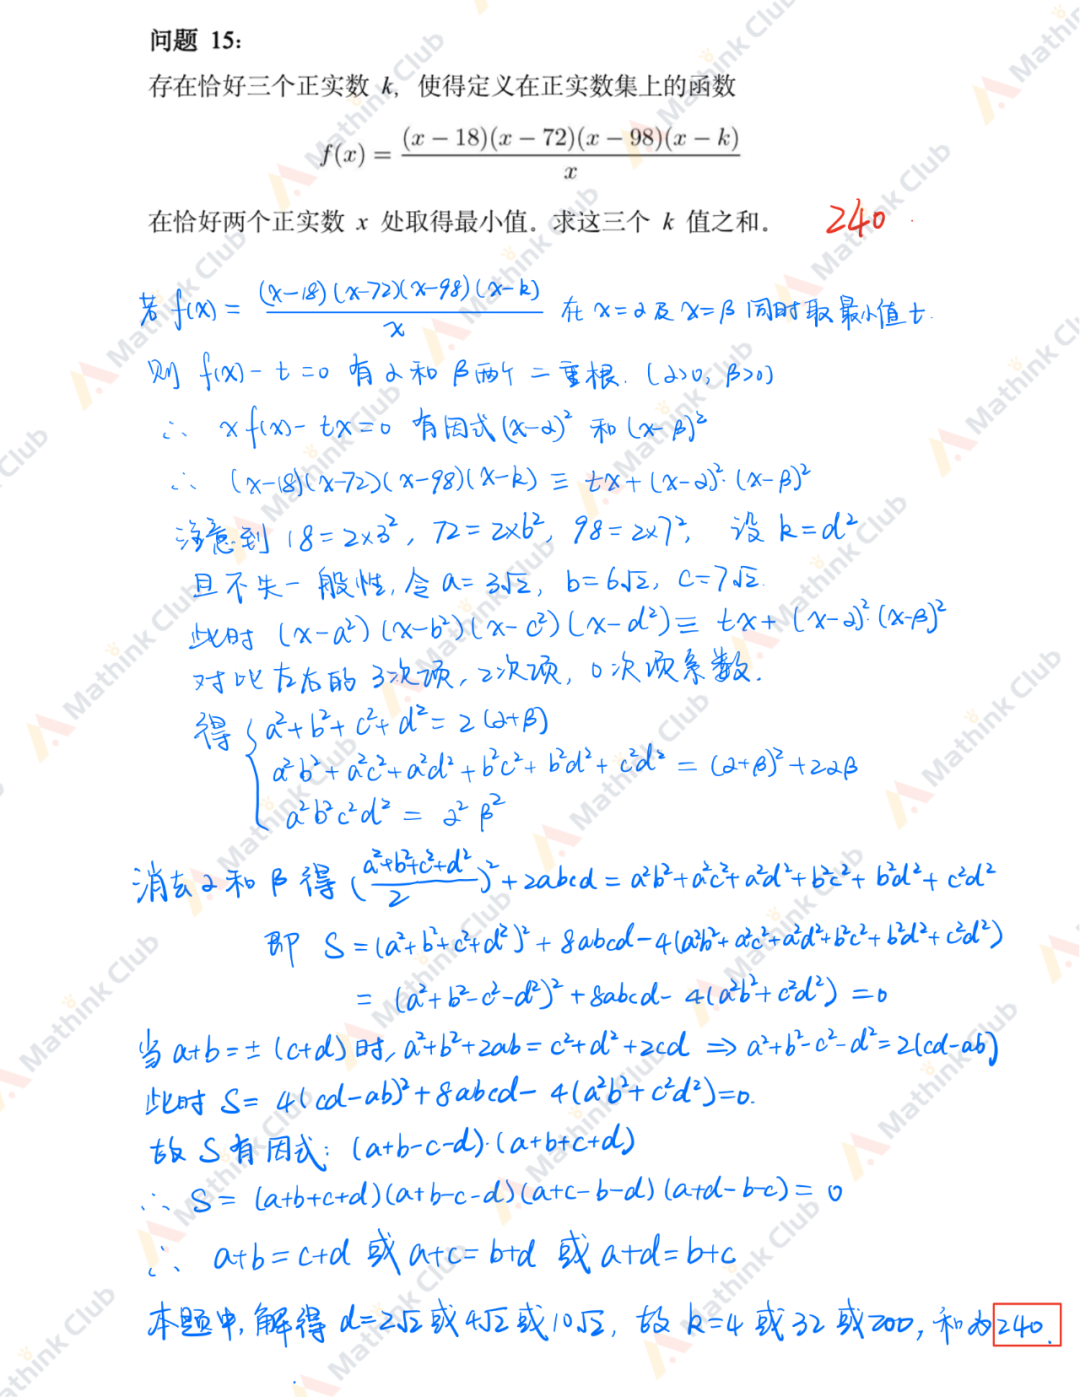 问题 15:
存在恰好三个正实数 k, 使得定义在正实数集上的函数
f(x) = (x − 18)(x − 72)(x − 98)(x − k) / x
在恰好两个正实数 x 处取得最小值。求这三个 k 值之和。 240
若 f(x) = (x-18)(x-72)(x-98)(x-k) / x 在 x=α 及 x=β 同时取最小值 t.
则 f(x)-t=0 有 α 和 β 两个二重根. (α>0, β>0)
∴ xf(x)-tx=0 有因式 (x-α)² 和 (x-β)²
∴ (x-18)(x-72)(x-98)(x-k) ≡ tx+(x-α)²·(x-β)²
注意到 18=2×3², 72=2×6², 98=2×7², 设 k=d²
且不失一般性, 令 a=3√2, b=6√2, c=7√2.
此时 (x-a²)(x-b²)(x-c²)(x-d²) ≡ tx+(x-α)²·(x-β)²
对比左右的 3次项, 2次项, 0次项系数.
得 { a²+b²+c²+d²=2(α+β)
a²b²+a²c²+a²d²+b²c²+b²d²+c²d² = (α+β)²+2αβ
a²b²c²d² = α²β²
消去 α 和 β 得 ((a²+b²+c²+d²)/2)²+2abcd = a²b²+a²c²+a²d²+b²c²+b²d²+c²d²
即 S=(a²+b²+c²+d²)²+8abcd-4(a²b²+a²c²+a²d²+b²c²+b²d²+c²d²)
= (a²+b²-c²-d²)²+8abcd-4(a²b²+c²d²)=0
当 a+b=±(c+d) 时, a²+b²+2ab=c²+d²+2cd ⇒ a²+b²-c²-d²=2(cd-ab)
此时 S=4(cd-ab)²+8abcd-4(a²b²+c²d²)=0.
故 S 有因式: (a+b-c-d)·(a+b+c+d)
∴ S=(a+b+c+d)(a+b-c-d)(a+c-b-d)(a+d-b-c)=0
∴ a+b=c+d 或 a+c=b+d 或 a+d=b+c
本题中, 解得 d=2√2 或 4√2 或 10√2, 故 k=4 或 32 或 200, 和为 240.
Mathink Club